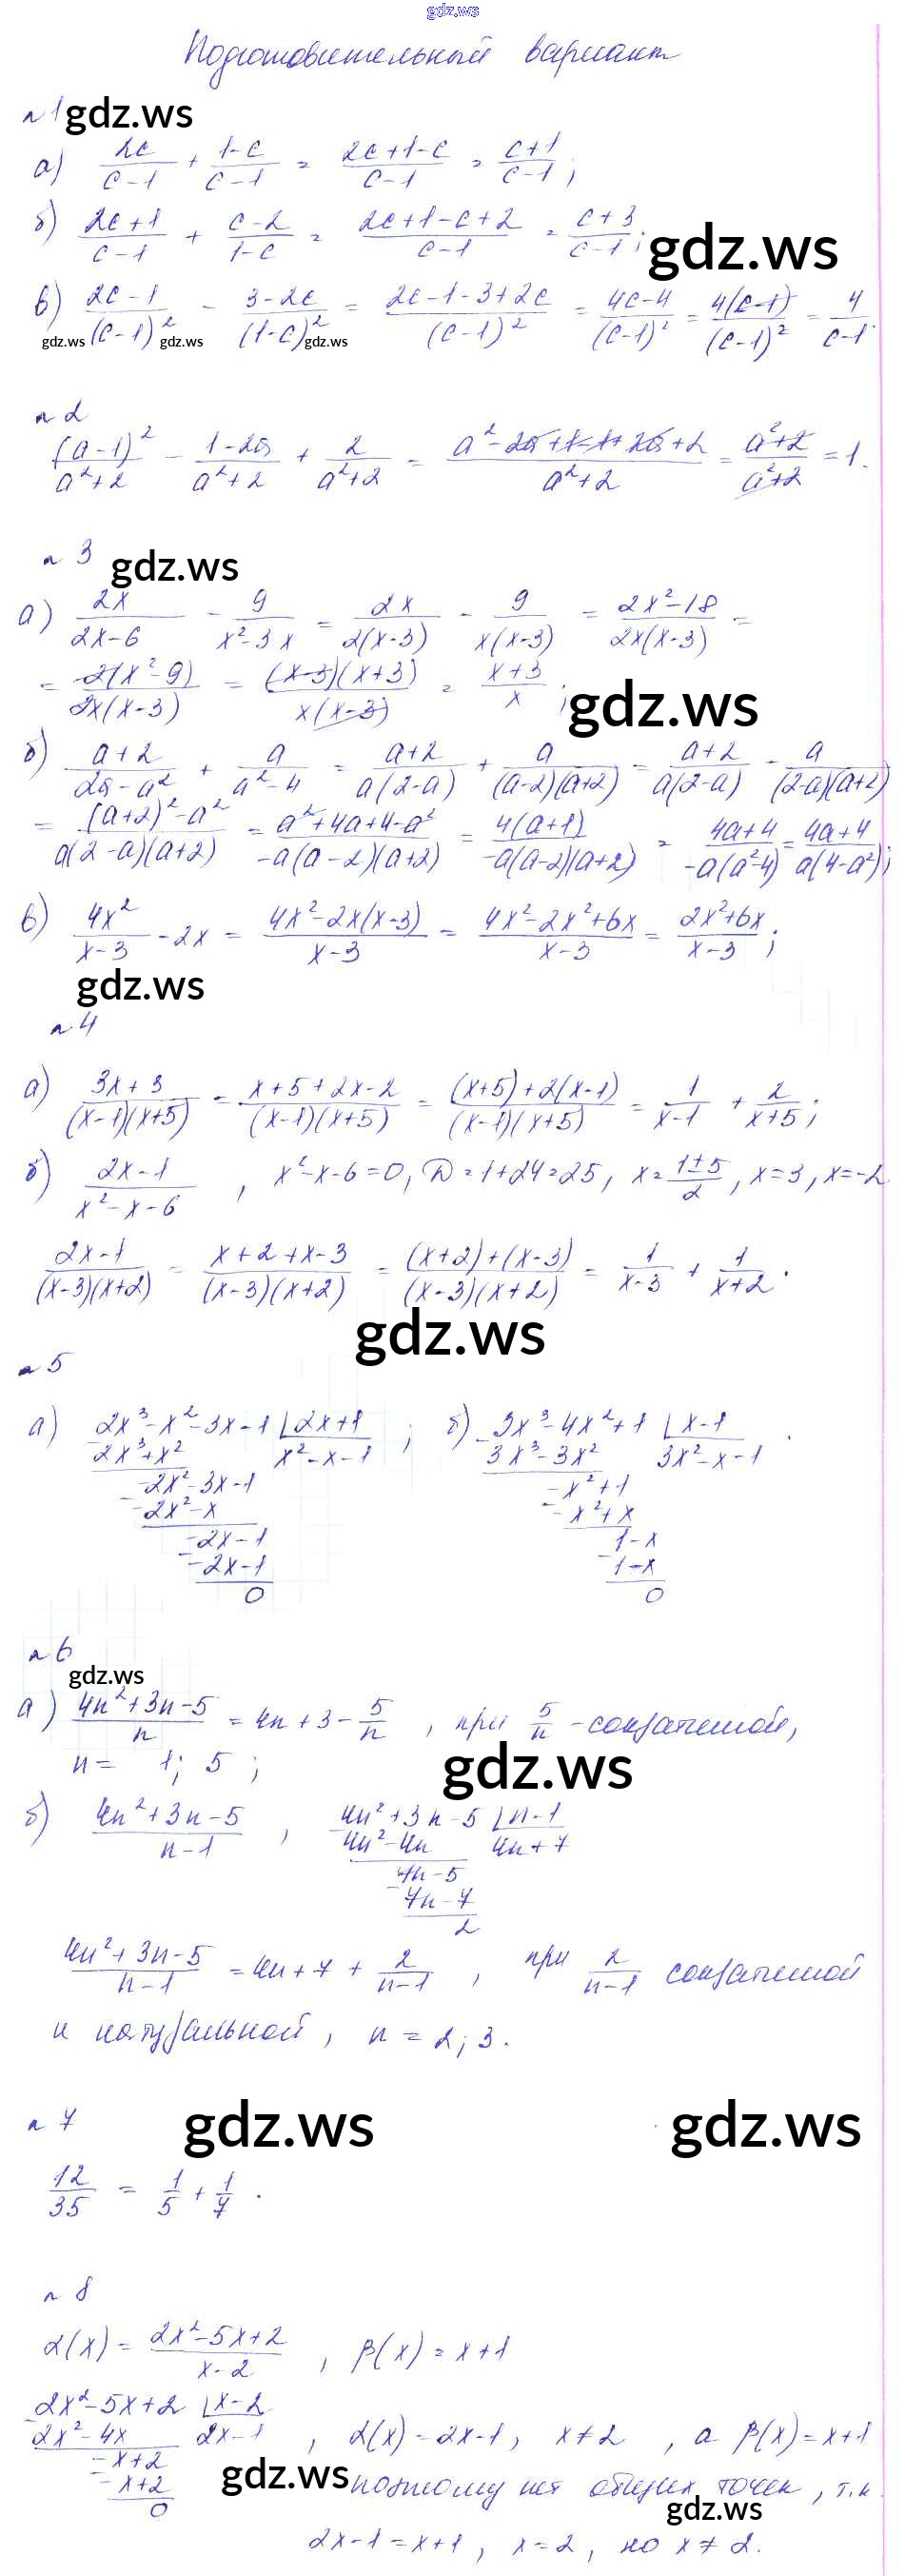 gdz.ws
Подготовительный вариант
№1 gdz.ws
а) 2c/(c-1) + (1-c)/(c-1) = (2c+1-c)/(c-1) = (c+1)/(c-1);
б) (2c+1)/(c-1) + (c-2)/(1-c) = (2c+1-c+2)/(c-1) = (c+3)/(c-1);
gdz.ws
в) (2c-1)/(c-1)² - (3-2c)/(1-c)² = (2c-1-3+2c)/(c-1)² = (4c-4)/(c-1)² = 4(c-1)/(c-1)² = 4/(c-1).
gdz.ws gdz.ws gdz.ws
№2
(a-1)²/(a²+2) - (1-2a)/(a²+2) + 2/(a²+2) = (a²-2a+1-1+2a+2)/(a²+2) = (a²+2)/(a²+2) = 1.
№3 gdz.ws
а) 2x/(2x-6) - 9/(x²-3x) = 2x/(2(x-3)) - 9/(x(x-3)) = (2x²-18)/(2x(x-3)) =
= 2(x²-9)/(2x(x-3)) = (x-3)(x+3)/(x(x-3)) = (x+3)/x;
gdz.ws
б) (a+2)/(2a-a²) + a/(a²-4) = (a+2)/(a(2-a)) + a/((a-2)(a+2)) = (a+2)/(a(2-a)) - a/((2-a)(a+2))
= ((a+2)²-a²)/(a(2-a)(a+2)) = (a²+4a+4-a²)/(-a(a-2)(a+2)) = 4(a+1)/(-a(a-2)(a+2)) = (4a+4)/(-a(a²-4)) = (4a+4)/(a(4-a²));
в) 4x²/(x-3) - 2x = (4x²-2x(x-3))/(x-3) = (4x²-2x²+6x)/(x-3) = (2x²+6x)/(x-3);
gdz.ws
№4
а) (3x+3)/((x-1)(x+5)) = (x+5+2x-2)/((x-1)(x+5)) = ((x+5)+2(x-1))/((x-1)(x+5)) = 1/(x-1) + 2/(x+5);
б) (2x-1)/(x²-x-6), x²-x-6=0, D=1+24=25, x=(1±5)/2, x=3, x=-2.
(2x-1)/((x-3)(x+2)) = (x+2+x-3)/((x-3)(x+2)) = ((x+2)+(x-3))/((x-3)(x+2)) = 1/(x-3) + 1/(x+2).
gdz.ws
№5
а) 2x³-x²-3x-1 | 2x+1 ; б) 3x³-4x²+1 | x-1 .
2x³+x² x²-x-1 3x³-3x² 3x²-x-1
-2x²-3x-1 -x²+1
-2x²-x -x²+x
-2x-1 1-x
-2x-1 1-x
0 0
№6
gdz.ws
а) (4n²+3n-5)/n = 4n+3-5/n, при 5/n - сократимой,
n= 1; 5;
gdz.ws
б) (4n²+3n-5)/(n-1), 4n²+3n-5 | n-1
4n²-4n 4n+7
7n-5
7n-7
2
(4n²+3n-5)/(n-1) = 4n+7+2/(n-1), при 2/(n-1) сократимой
и натуральной, n=2; 3.
№7 gdz.ws gdz.ws
12/35 = 1/5 + 1/7.
№8
α(x) = (2x²-5x+2)/(x-2), β(x)=x+1
2x²-5x+2 | x-2
2x²-4x 2x-1 , α(x)=2x-1, x≠2, а β(x)=x+1
-x+2
-x+2 gdz.ws поэтому нет общих точек, т.к.
0 gdz.ws
2x-1=x+1, x=2, но x≠2.